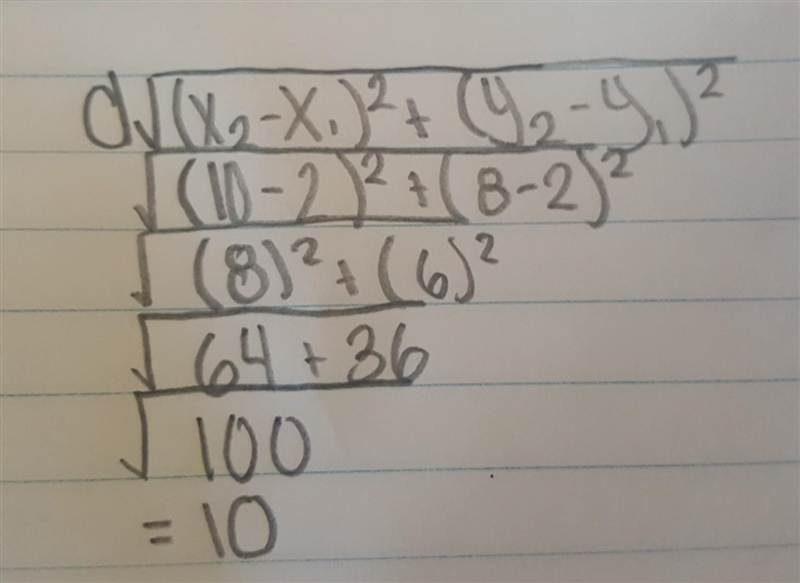 d√(x₂-x₁)² + (y₂-y₁)²
√(10-2)² + (8-2)²
√(8)² + (6)²
√64 + 36
√100
= 10